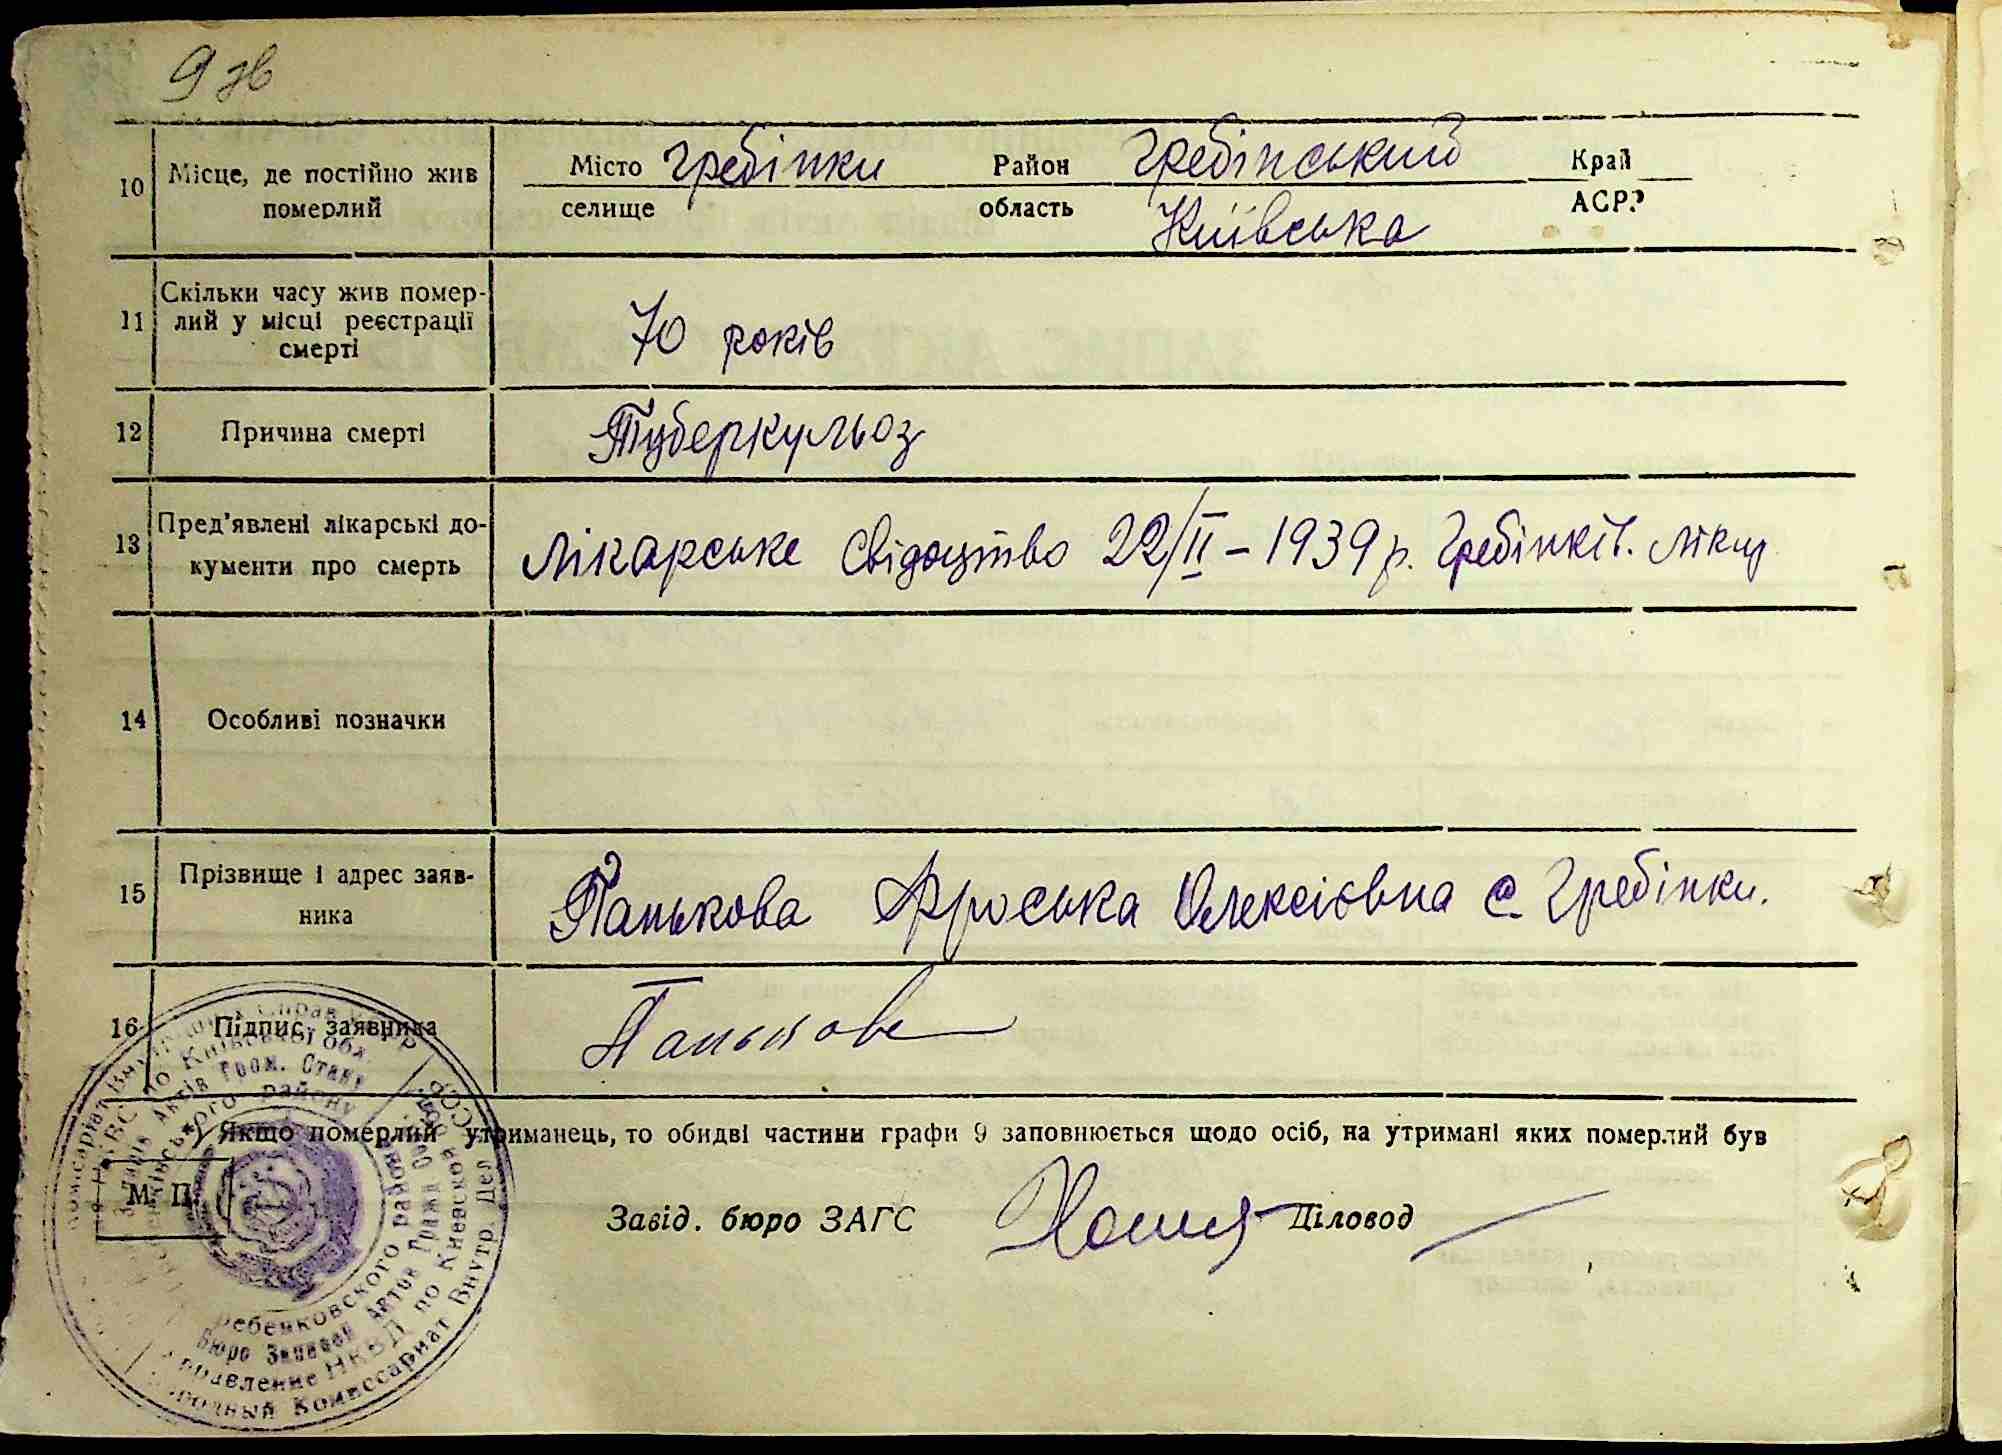 9 зв
10 Місце, де постійно жив померлий
Місто Гребінки Район Гребінський Край
селище область Київська АСРР
11 Скільки часу жив помер-
лий у місці реєстрації
смерті
70 років
12 Причина смерті Туберкульоз
13 Пред'явлені лікарські до-
кументи про смерть
Лікарське свідоцтво 22/II – 1939 р. Гребінків. лікар
14 Особливі позначки
15 Прізвище і адрес заяв-
ника
Панькова Фроська Олексієвна с. Гребінки.
16 Підпис заявника Панькова
Якщо померлий утриманець, то обидві частини графи 9 заповнюється щодо осіб, на утримані яких померлий був
М. П.
Завід. бюро ЗАГС Діловод
Народный Комиссариат Внутр. Дел СССР
Управление НКВД по Киевской обл.
Бюро Записей Актов Гражд.
Гребенковского района
по Київській обл.
Актів Гром. Стану
району